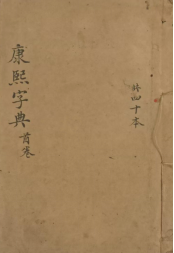 康熙字典首卷
終四十本